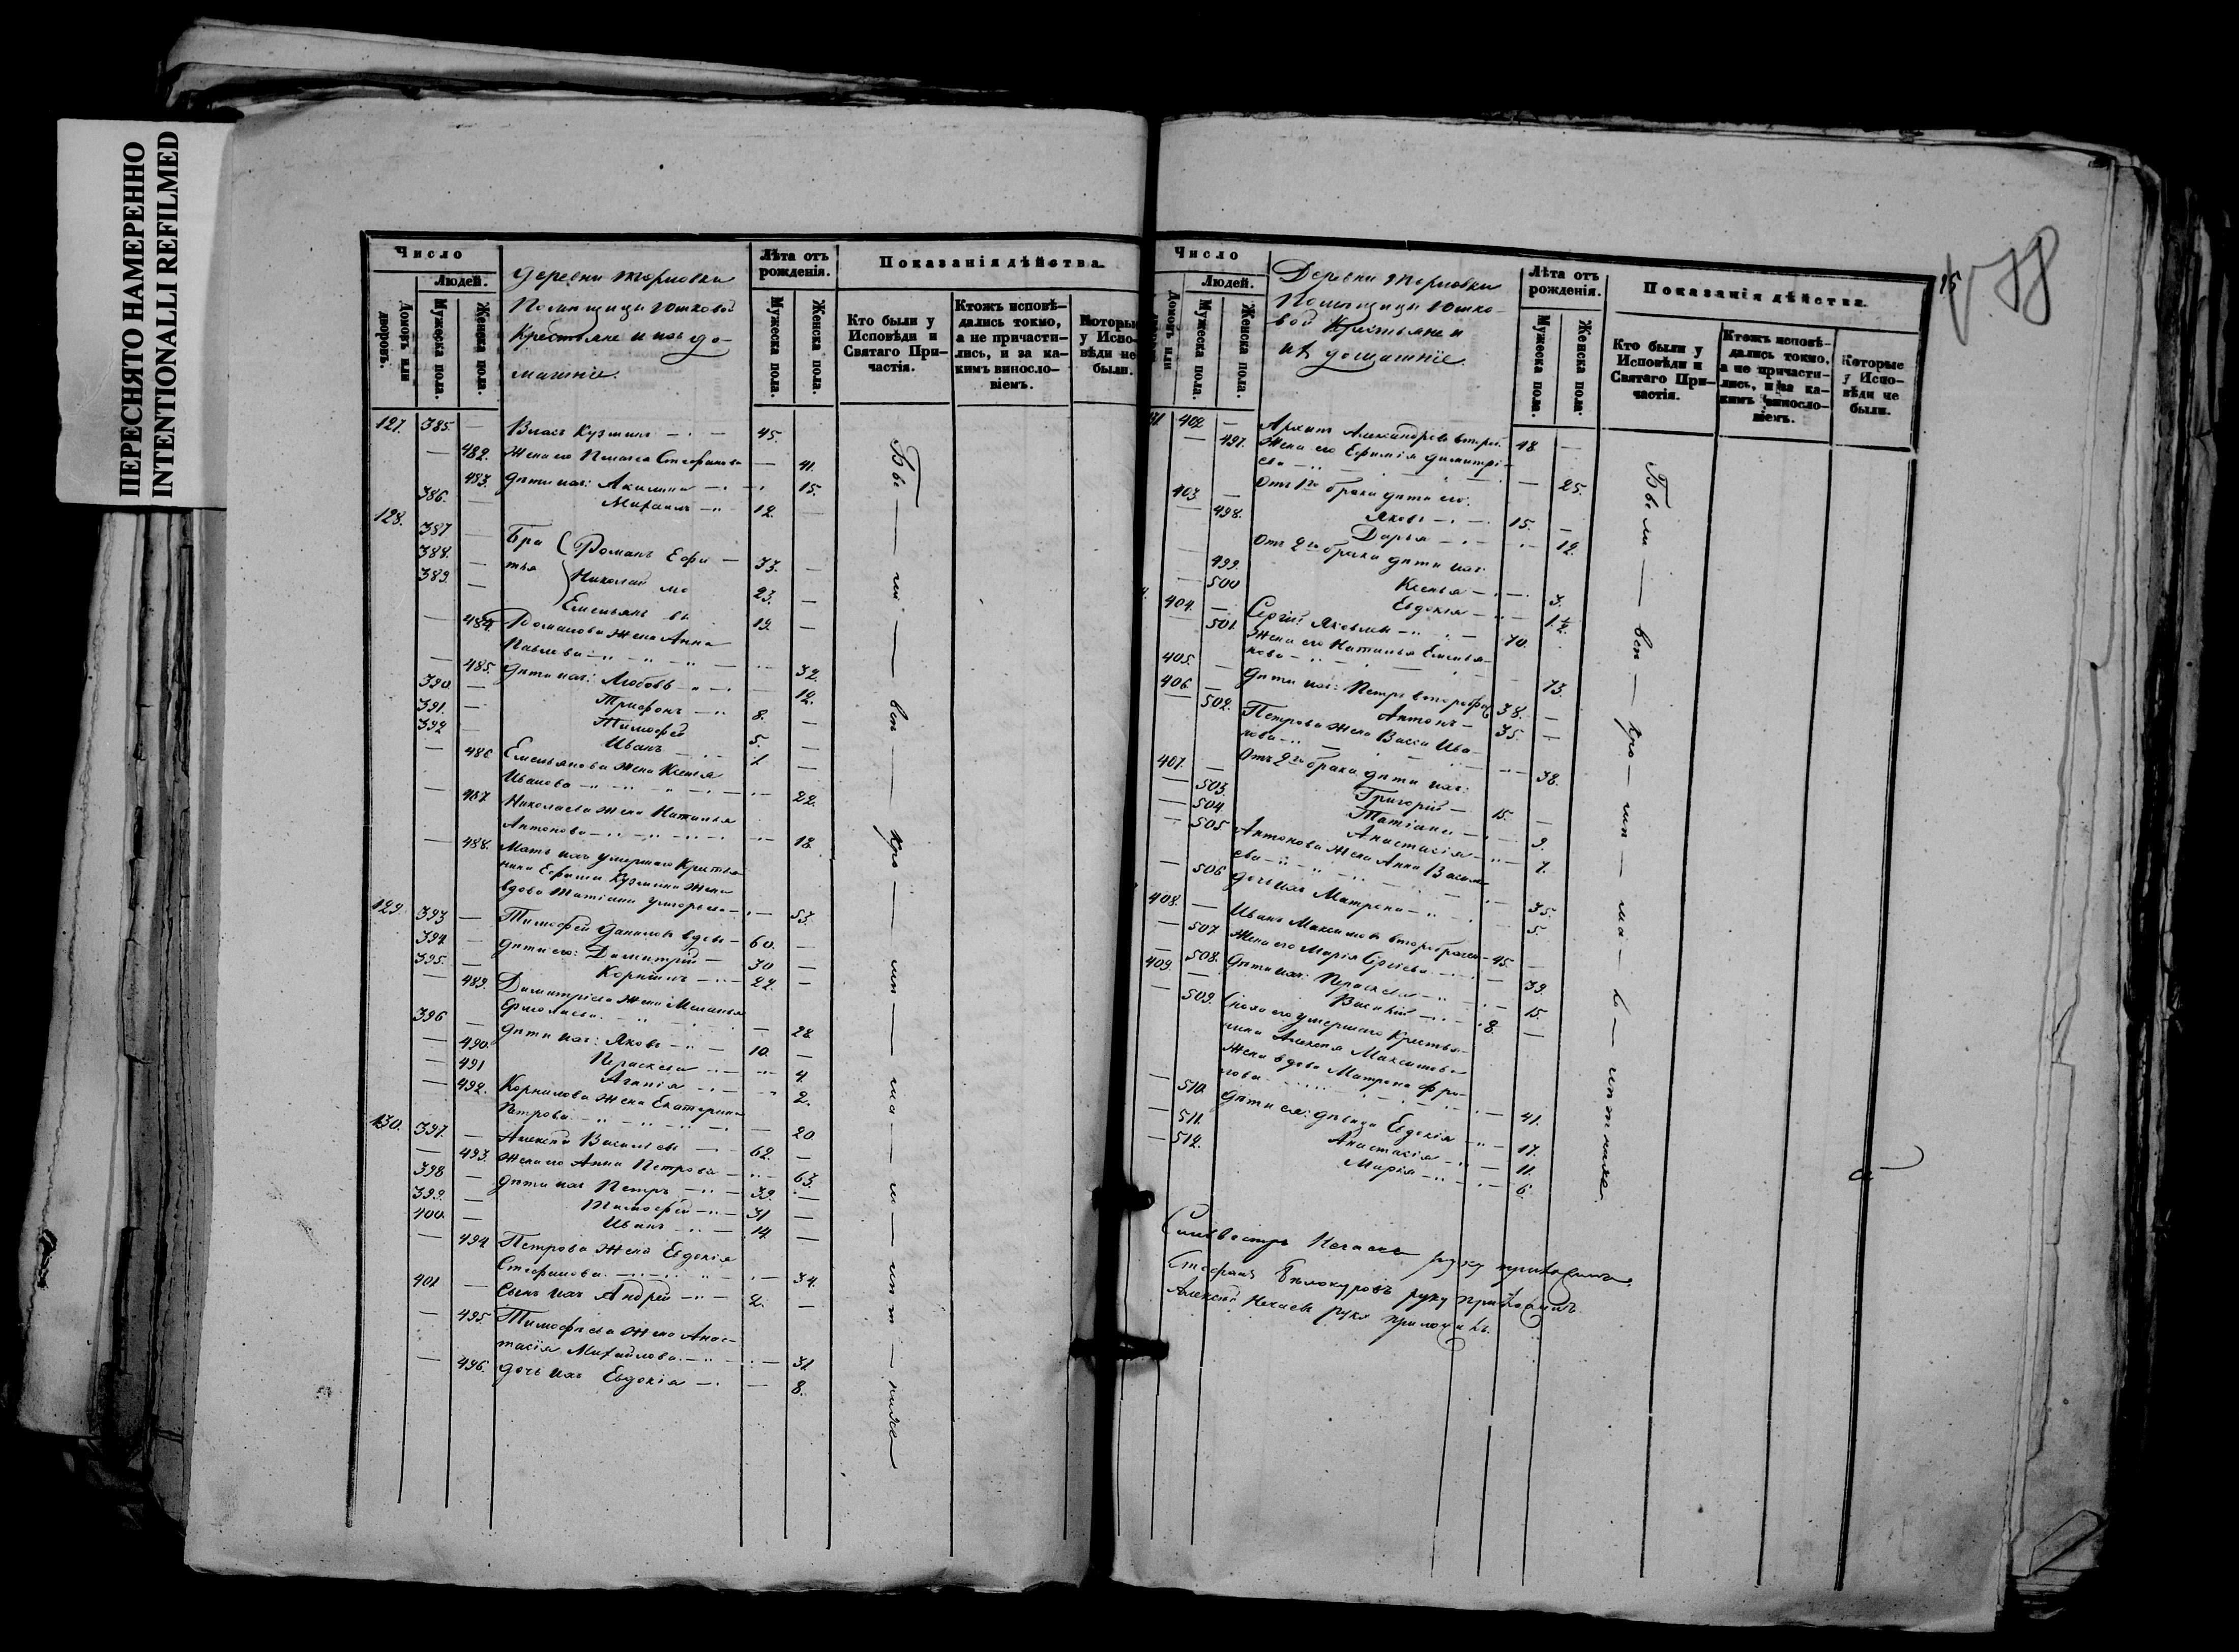 ПЕРЕСНЯТО НАМЕРЕННО
INTENTIONALLI REFILMED
Число
Людей.
Домовъ или дворовъ.
Мужеска пола.
Женска пола.
Деревни Терновки
Помѣщицы Юшковой
Крестьяне и ихъ до-
машніе.
Лѣта отъ рожденія.
Мужеска пола.
Женска пола.
Показанія дѣйства.
Кто были у Исповѣди и Святаго При-частія.
Ктожъ исповѣ-дались токмо, а не причасти-лись, и за ка-кимъ виносло-віемъ.
Которые у Испо-вѣди не были.
127. 385. — Власъ Кузминъ — 45.
— 482. Жена его Пелагея Стефанова — 41.
483. Дѣти ихъ: Акилина — 15.
386. — Михаилъ — 12. —
128. 387 — Бра Романъ Ефи — 33. —
388. — тья Николай мо 23. —
389. — Емельянъ вы 19. —
— 484. Романова жена Анна
Павлова — 32.
— 485. Дѣти ихъ: Любовь — 12.
390. — Трифонъ — 8. —
391. — Тимофей 5. —
392 — Иванъ — 1 —
— 486 Емельянова жена Ксенья
Иванова — 22.
— 487 Николаева жена Наталья
Антонова — 18.
— 488. Мать ихъ умершаго Крестья
нина Ефима Кузмина жена
вдова Татіана Григорьева — 53.
129. 393 — Тимофей Даниловъ вдовъ — 60. —
394. — Дѣти его: Димитрій — 30 —
395. — Корнилъ — 22. —
— 489. Димитріева жена Меланья
Ермолаева. — 28.
396 — Дѣти ихъ: Яковъ — 10. —
— 490. Параскева — 4.
— 491 Агапія — 2.
— 492. Корнилова жена Екатерина
Петрова — 20
130. 397. — Алексѣй Васильевъ — 62. —
— 493. Жена его Анна Петрова — 63.
398 — Дѣти ихъ Петръ — 39. —
399. — Тимофей — 31 —
400. — Иванъ — 14. —
— 494 Петрова жена Евдокія
Стефанова. — 34.
401 — Сынъ ихъ Андрей — 2. —
— 495. Тимофеева жена Анас-
тасія Михайлова. — 31
— 496. Дочь ихъ Евдокія — 8.
Бы — ли — вы — ше
Число
Людей.
Домовъ или
Мужеска пола.
Женска пола.
Деревни Терновки
Помѣщицы Юшко-
вой Крестьяне и
ихъ домашніе.
Лѣта отъ рожденія.
Мужеска пола.
Женска пола.
Показанія дѣйства.
Кто были у Исповѣди и Святаго При-частія.
Ктожъ исповѣ-дались токмо, а не причасти-лись, и за ка-кимъ виносло-віемъ.
Которые у Испо-вѣди не были.
15
131 402 — Архипъ Александровъ вторбр. 48 —
— 497. Жена его Ефимія Димитрі-
ева — 25.
Отъ 1го брака дѣти его:
403. — Яковъ — 15. —
— 498. Дарья — 12.
Отъ 2го брака дѣти ихъ:
— 499. Ксенья — 3.
— 500 Евдокія — 1 1/2.
404. — Сергій Яковлевъ — 70.
— 501. Жена его Наталья Емелья-
нова — 73.
405. — Дѣти ихъ: Петръ второбрач. 38. —
406. — Антонъ — 35. —
— 502. Петрова жена Васса Ива-
нова — 38.
Отъ 2го брака дѣти ихъ:
407. — Григорій — 15. —
— 503. Татіана — 9.
— 504. Анастасія — 7.
— 505 Антонова жена Анна Василь-
ева — 35.
— 506 Дочь ихъ Матрена — 5.
408. — Иванъ Максимовъ второбрачн — 45. —
— 507. Жена его Марія Сергіева — 39.
— 508. Дѣти ихъ: Параскева — 15.
409. — Василій — 8. —
— 509. Сноха его умершаго Крестья-
нина Алексѣя Максимова
жена вдова Матрона Фро-
лова — 41.
— 510. Дѣти ея: дѣвица Евдокія — 17.
— 511. Анастасія — 11.
— 512. Марія — 6.
Были
Сильвестръ Нечаевъ руку приложилъ.
Стефанъ Бѣлокуровъ руку приложилъ
Алексѣй Нечаевъ руку приложилъ.